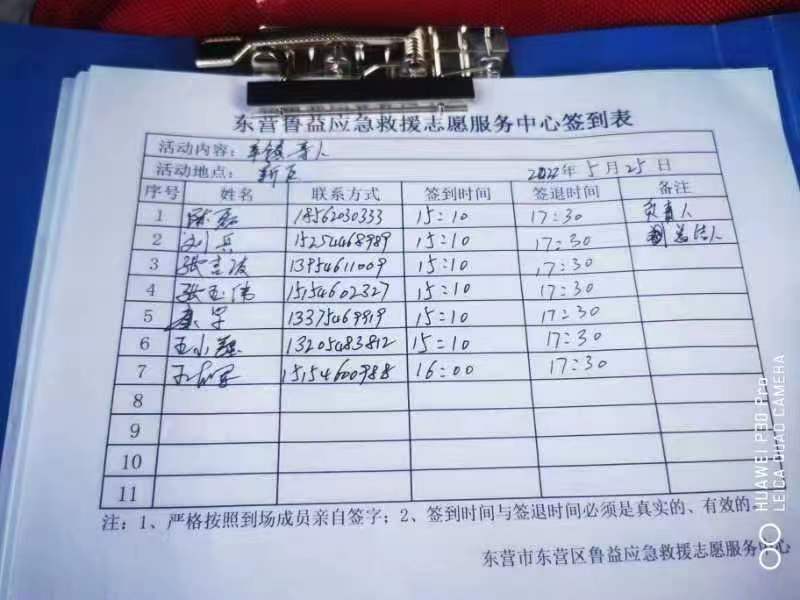 东营鲁益应急救援志愿服务中心签到表
活动内容：寻人
活动地点： 2022年5月25日
序号 姓名 联系方式 签到时间 签退时间 备注
1 18562030333 15:10 17:30 负责人
2 刘兵 15254468989 15:10 17:30
3 13954611009 15:10 17:30
4 张玉伟 15154602327 15:10 17:30
5 13375469919 15:10 17:30
6 王小 13205483812 15:10 17:30
7 15154600988 16:00 17:30
8
9
10
11
注：1、严格按照到场成员亲自签字；2、签到时间与签退时间必须是真实的、有效的。
东营市东营区鲁益应急救援志愿服务中心
HUAWEI P30 Pro
LEICA QUAD CAMERA